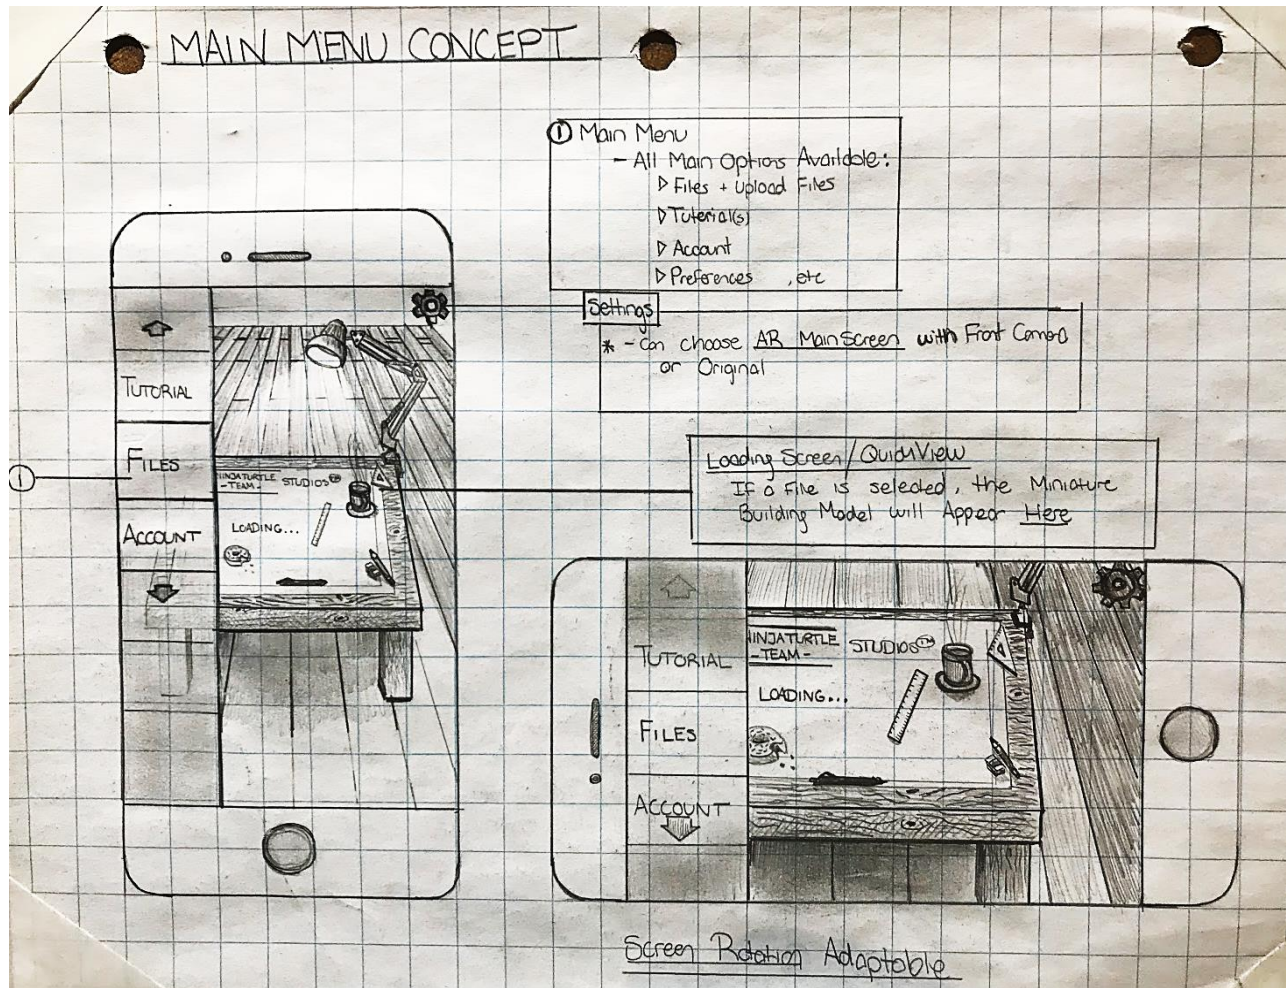 MAIN MENU CONCEPT
① Main Menu
- All Main Options Available:
▷ Files + Upload Files
▷ Tutorial(s)
▷ Account
▷ Preferences , etc
Settings
* - Can choose AR MainScreen with Front Camera
or Original
Loading Screen/QuickView
If a File is selected, the Miniature
Building Model will Appear Here
①
TUTORIAL
FILES
ACCOUNT
NINJATURTLE
- TEAM -
STUDIOS™
LOADING...
TUTORIAL
FILES
ACCOUNT
NINJATURTLE
- TEAM -
STUDIOS™
LOADING...
Screen Rotation Adaptable